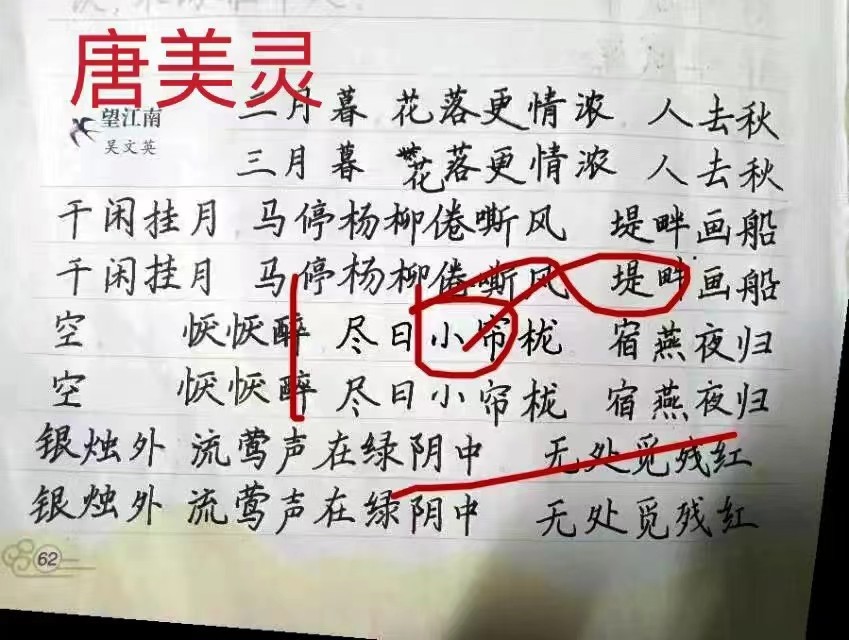 唐美灵
望江南
吴文英
三月暮 花落更情浓 人去秋
三月暮 花落更情浓 人去秋
千闲挂月 马停杨柳倦嘶风 堤畔画船
千闲挂月 马停杨柳倦嘶风 堤畔画船
空 恹恹醉 尽日小帘栊 宿燕夜归
空 恹恹醉 尽日小帘栊 宿燕夜归
银烛外 流莺声在绿阴中 无处觅残红
银烛外 流莺声在绿阴中 无处觅残红
62